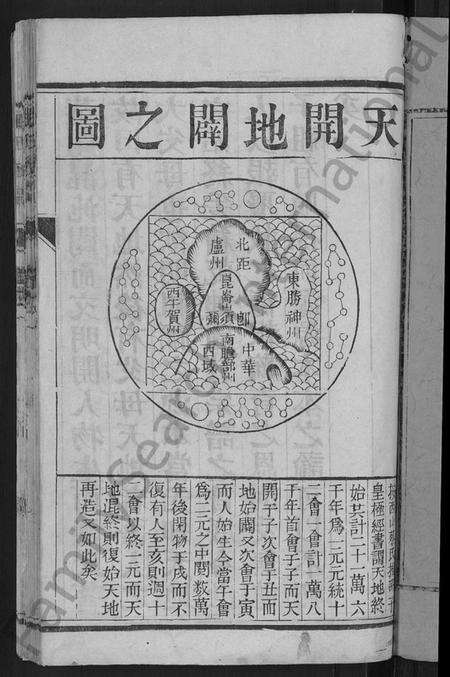 天開地闢之圖
北距
盧州
崑崙
即須彌
東勝神州
西牛賀州
南贍部州
中華
西域
皇極經書謂天地終
始其計一十二萬六
千年為一元元統十
二會一會計一萬八
千年首會子子而天
開于子次會于丑而
地始闢又次會于寅
而人始生今當午會
為一元之中閱数萬
年後閉物于戌而不
復有人至亥則週十
二會以終一元而天
地混終則復始天地
再造又如此矣
FamilySearch International